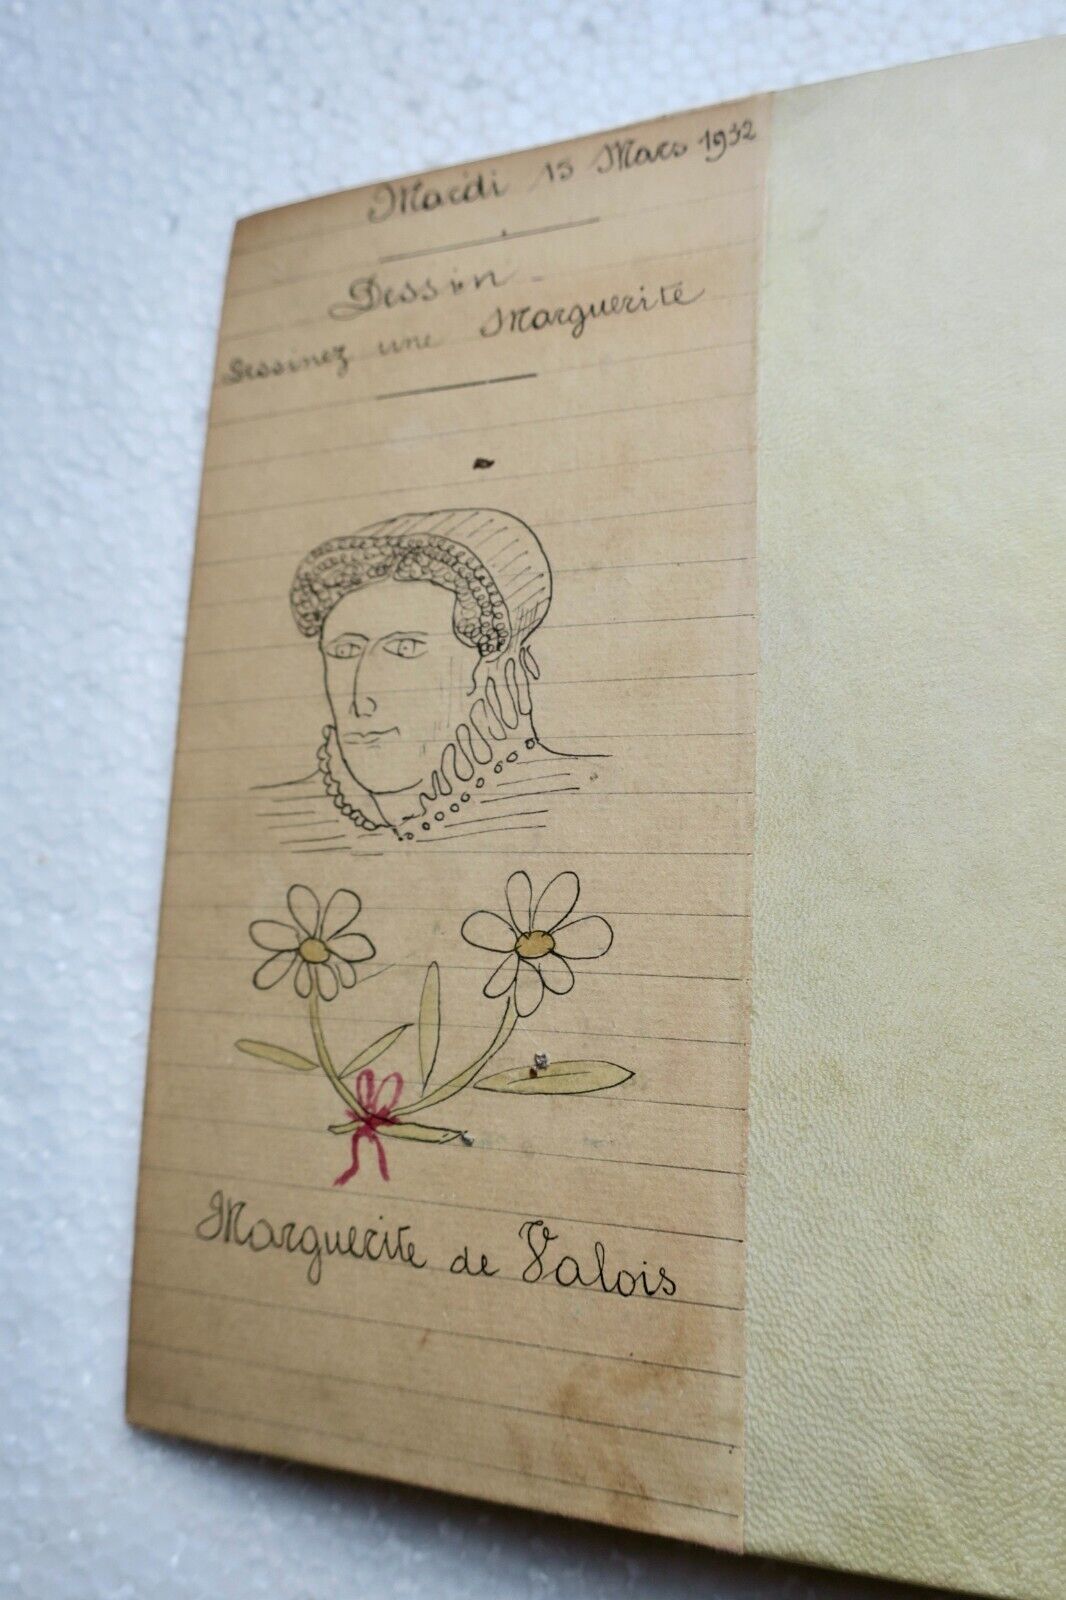 Mardi 15 Mars 1932
Dessin
Dessinez une Marguerite
Marguerite de Valois